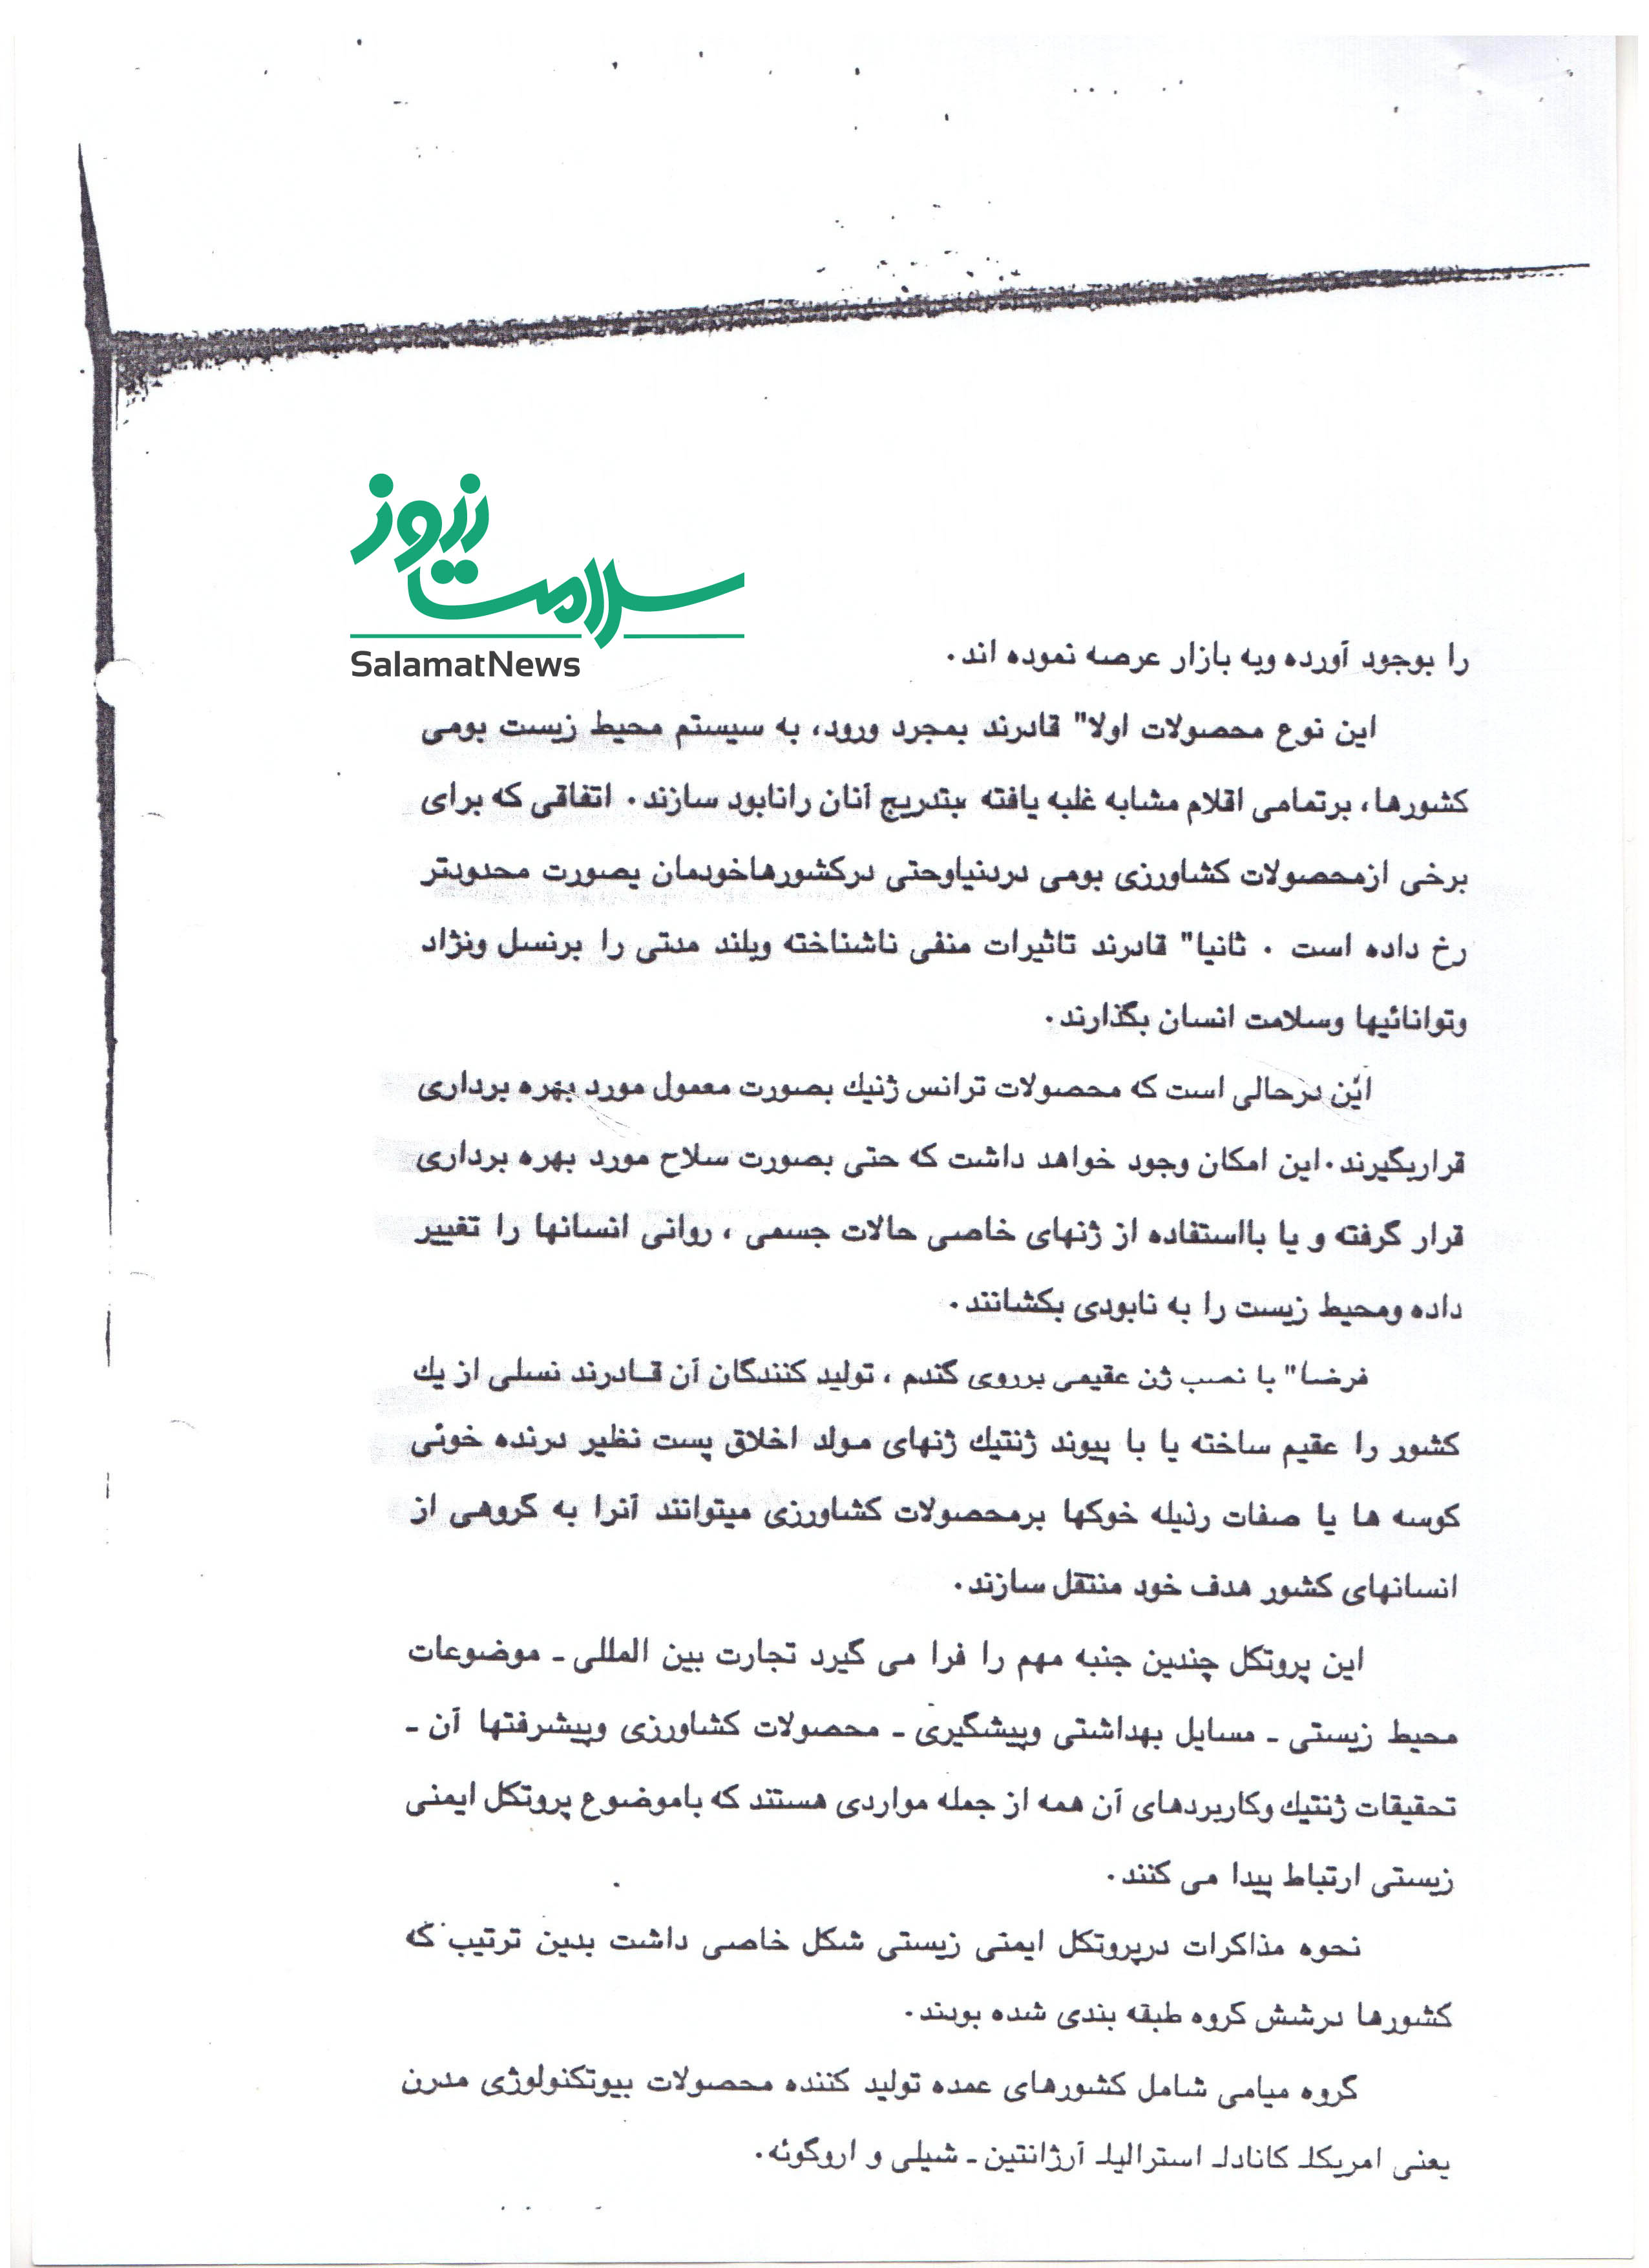 سلامت نیوز
SalamatNews
را بوجود آورده وبه بازار عرصه نموده اند.
این نوع محصولات اولا" قادرند بمجرد ورود، به سیستم محیط زیست بومی
کشورها، برتمامی اقلام مشابه غلبه یافته بتدریج آنان رانابود سازند. اتفاقی که برای
برخی ازمحصولات کشاورزی بومی دردنیاوحتی درکشورهاخودمان بصورت محدودتر
رخ داده است . ثانیا" قادرند تاثیرات منفی ناشناخته وبلند مدتی را برنسل ونژاد
وتوانائیها وسلامت انسان بگذارند.
این درحالی است که محصولات ترانس ژنیك بصورت معمول مورد بهره برداری
قراربگیرند.این امکان وجود خواهد داشت که حتی بصورت سلاح مورد بهره برداری
قرار گرفته و یا بااستفاده از ژنهای خاصی حالات جسمی ، روانی انسانها را تغییر
داده ومحیط زیست را به نابودی بکشانند.
فرضا" با نصب ژن عقیمی برروی گندم ، تولید کنندگان آن قـادرند نسلی از یك
کشور را عقیم ساخته یا با پیوند ژنتیك ژنهای مولد اخلاق پست نظیر درنده خوئی
کوسه ها یا صفات رذیله خوکها برمحصولات کشاورزی میتوانند آنرا به گروهی از
انسانهای کشور هدف خود منتقل سازند.
این پروتکل چندین جنبه مهم را فرا می گیرد تجارت بین المللی ـ موضوعات
محیط زیستی ـ مسایل بهداشتی وپیشگیری ـ محصولات کشاورزی وپیشرفتها آن ـ
تحقیقات ژنتیك وکاربردهای آن همه از جمله مواردی هستند که باموضوع پروتکل ایمنی
زیستی ارتباط پیدا می کنند.
نحوه مذاکرات درپروتکل ایمنی زیستی شکل خاصی داشت بدین ترتیب که
کشورها درشش گروه طبقه بندی شده بودند.
گروه میامی شامل کشورهای عمده تولید کننده محصولات بیوتکنولوژی مدرن
یعنی امریکاـ کاناداـ استرالیاـ آرژانتین ـ شیلی و اروگوئه.